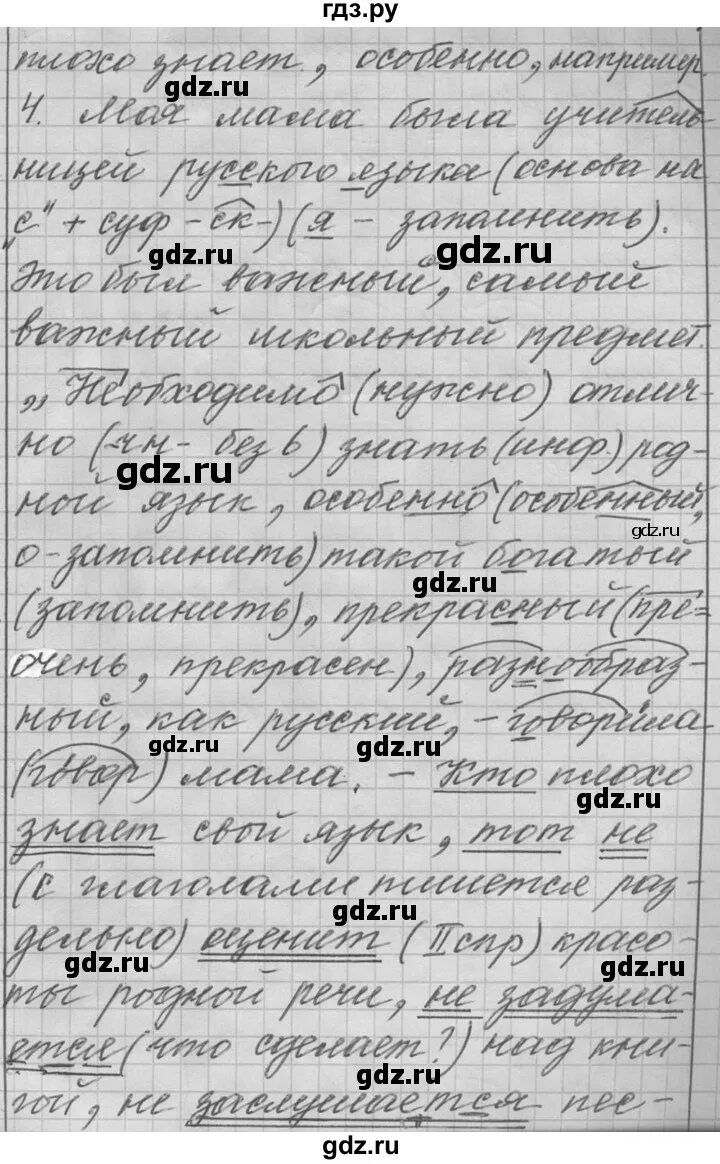 гдз.ру
плохо знает, особенно, например.
gdz.ru
4. Моя мама была учитель-
ницей русского языка (основа на
„с" + суф -ск-) (я - запомнить).
gdz.ru
gdz.ru
Это был важный, самый
важный школьный предмет.
„Необходимо (нужно) отлич-
но (-чн- без ь) знать (инф.) род-
gdz.ru
ной язык, особенно (особенный,
gdz.ru
о-запомнить) такой богатый
gdz.ru
(запомнить), прекрасный (пре=
очень, прекрасен), разнообраз-
ный, как русский, - говорила
gdz.ru
gdz.ru
(говор) мама. - Кто плохо
gdz.ru
знает свой язык, тот не
(с глаголами пишется раз-
gdz.ru
дельно) оценит (II спр) красо-
gdz.ru
gdz.ru
ты родной речи, не задума-
ется (что сделает?) над кни-
gdz.ru
гой, не заслушается пес-
gdz.ru